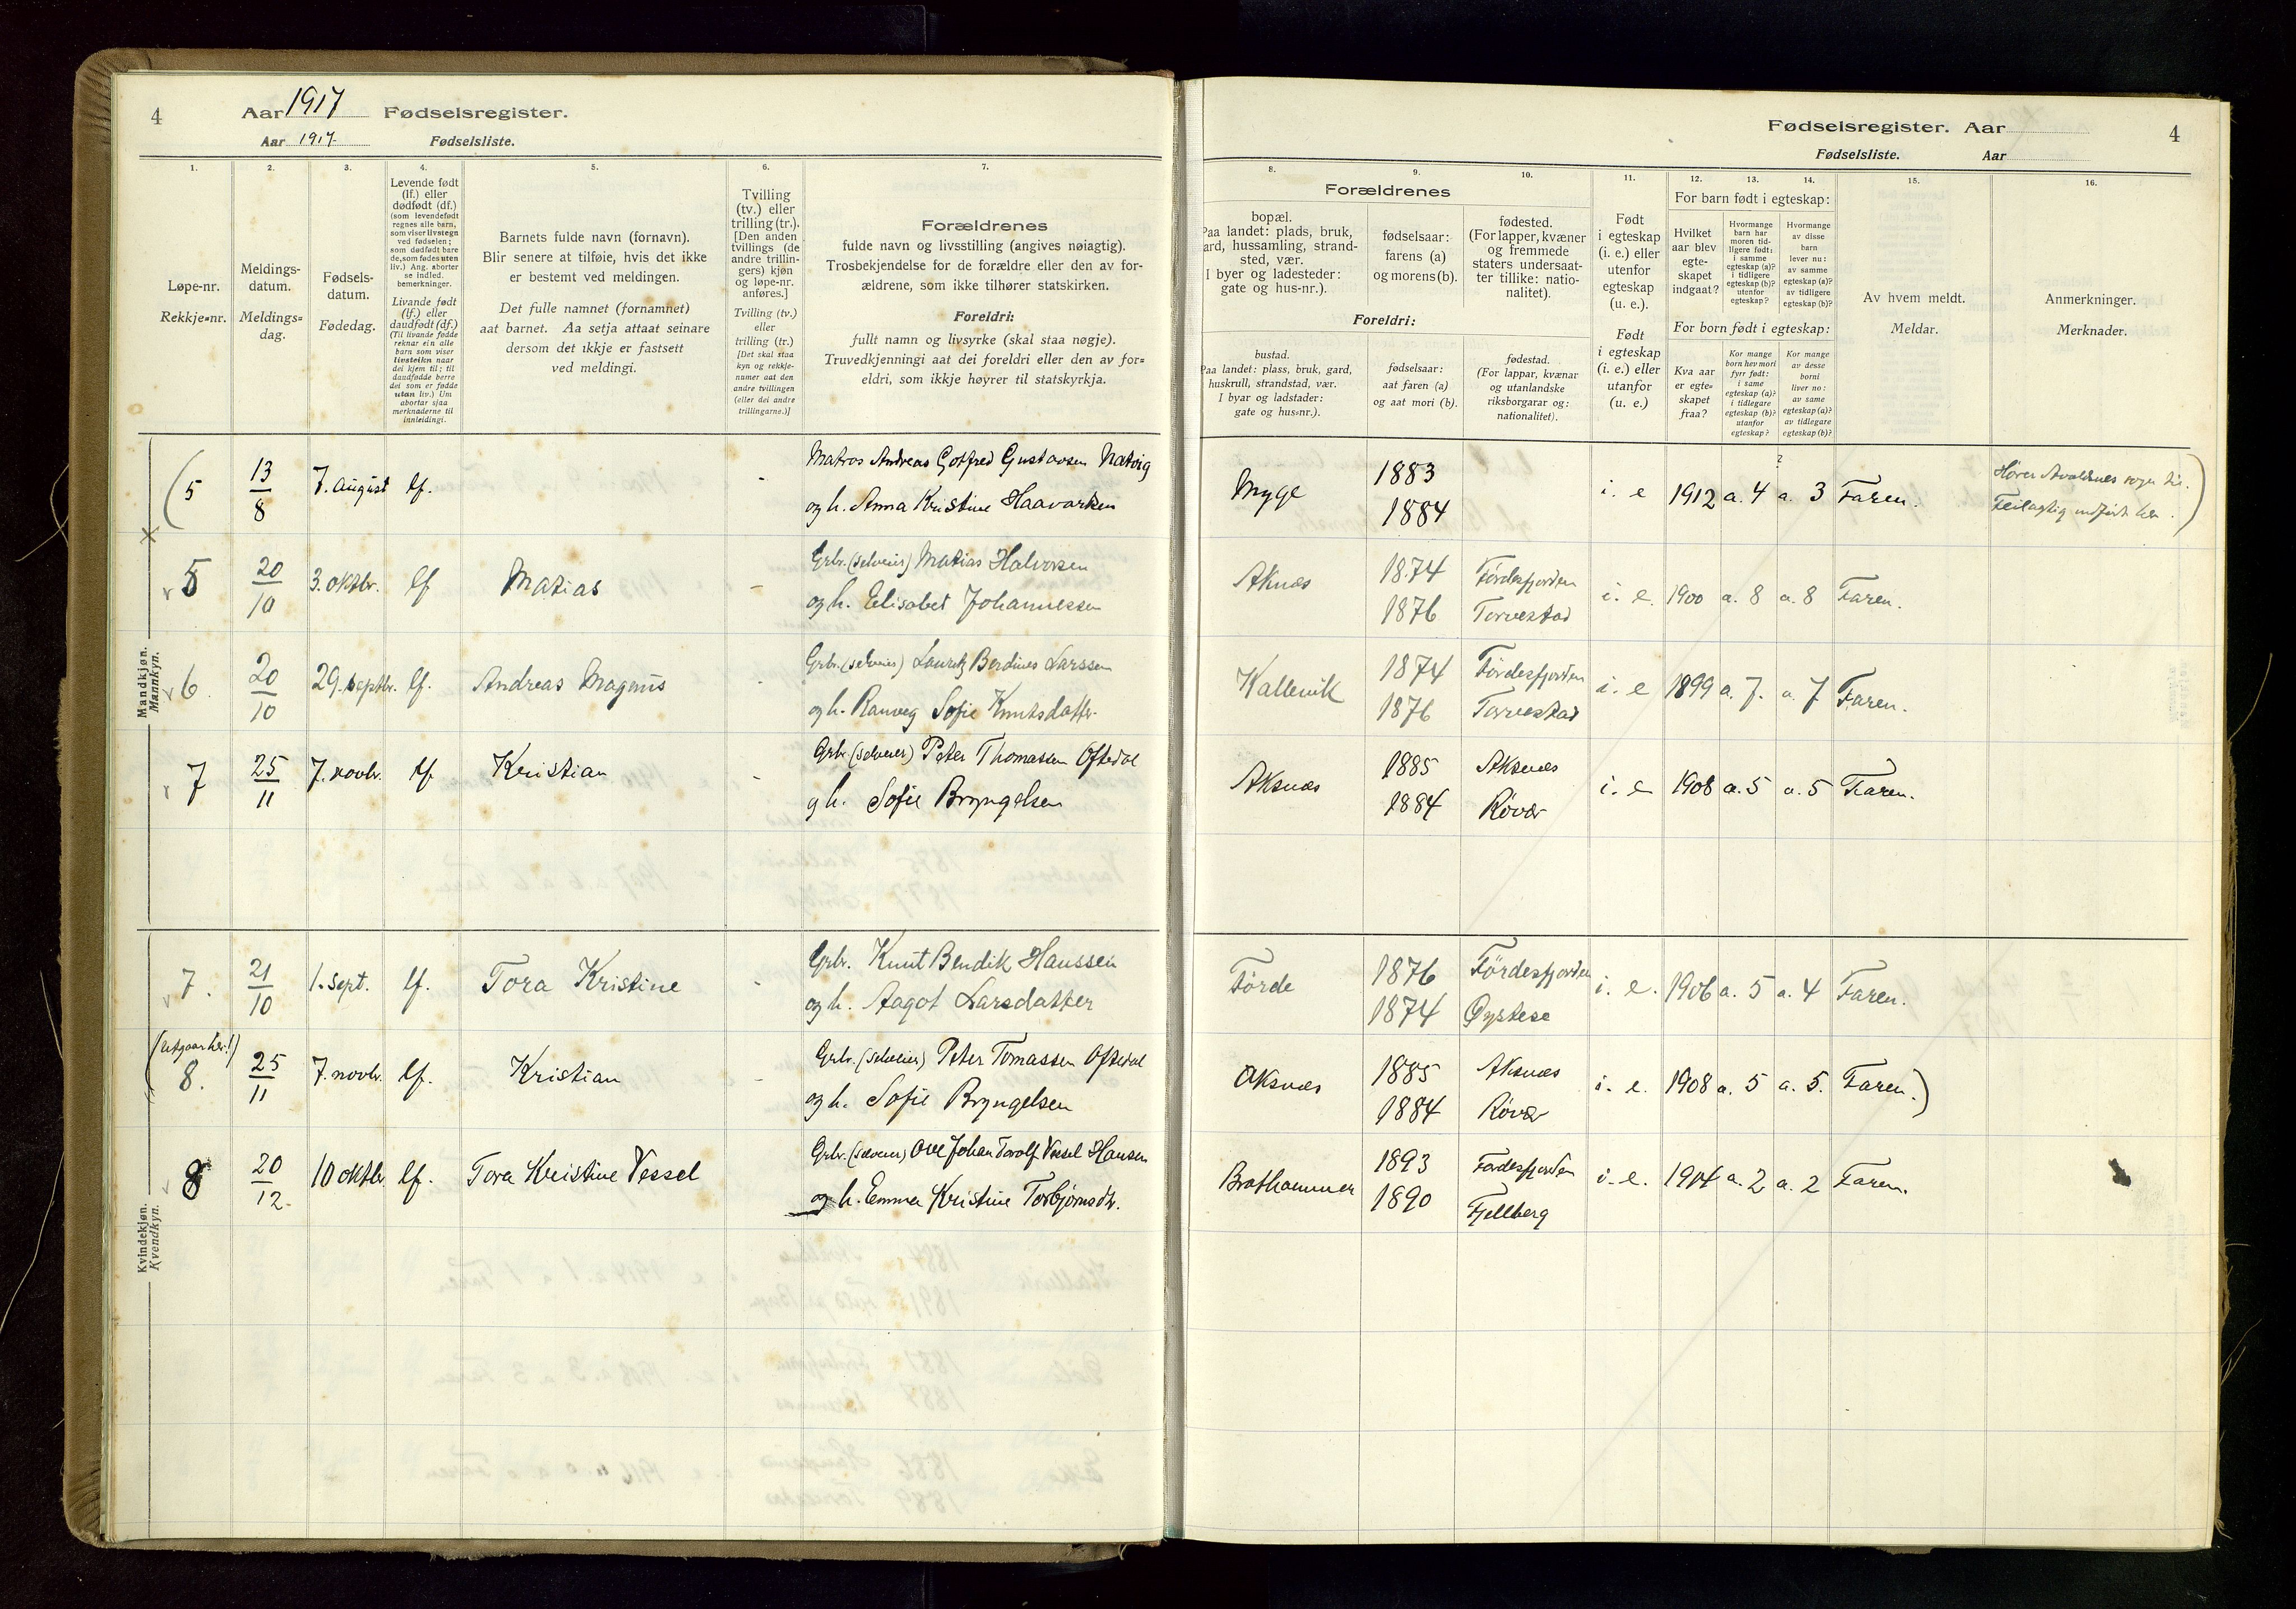 4 Aar 1917 Fødselsregister.
Aar 1917 Fødselsliste.
Fødselsregister. Aar 4
Fødselsliste. Aar
1. 2. 3. 4. 5. 6. 7. 8. 9. 10. 11. 12. 13. 14. 15. 16.
Løpe-nr.
Rekkje-nr.
Meldings-
datum.
Meldings-
dag.
Fødsels-
datum.
Fødedag.
Levende født
(lf.) eller
dødfødt (df.)
(som levendefødt
regnes alle barn,
som viser livstegn
ved fødselen;
som dødfødt bare
de, som fødes uten
liv.) Ang. aborter
se indled.
bemerkninger.
Livande født
(lf.) eller
daudfødt (df.)
(Til livande fødde
reknar ein alle
barn som viser
livsteikn naar
dei kjem til; til
daudfødde berre
dei som er fødde
utan liv.) Um
abortar sjaa
merknaderne til
innleidingi.
Barnets fulde navn (fornavn).
Blir senere at tilføie, hvis det ikke
er bestemt ved meldingen.
Det fulle namnet (fornamnet)
aat barnet. Aa setja attaat seinare
dersom det ikkje er fastsett
ved meldingi.
Tvilling
(tv.) eller
trilling (tr.).
[Den anden
tvillings (de
andre trillin-
gers) kjøn
og løpe-nr.
anføres.]
Tvilling (tv.)
eller
trilling (tr.)
[Det skal staa
kyn og rekkje-
numer aat den
andre tvillingen
(eller dei andre
trillingarne.)]
Forældrenes
fulde navn og livsstilling (angives nøiagtig).
Trosbekjendelse for de forældre eller den av for-
ældrene, som ikke tilhører statskirken.
Foreldri:
fullt namn og livsyrke (skal staa nøgje).
Truvedkjenningi aat dei foreldri eller den av for-
eldri, som ikkje høyrer til statskyrkja.
Forældrenes
bopæl.
Paa landet: plads, bruk,
ard, hussamling, strand-
sted, vær.
I byer og ladesteder:
gate og hus-nr.).
fødselsaar:
farens (a)
og morens (b).
fødested.
(For lapper, kvæner
og fremmede
staters undersaat-
ter tillike: natio-
nalitet).
Foreldri:
bustad.
Paa landet: plass, bruk, gard,
huskrull, strandstad, vær.
I byar og ladstader:
gate og hus-nr.).
fødselsaar:
aat faren (a)
og aat mori (b).
fødestad.
(For lappar, kvænar
og utanlandske
riksborgarar og:
nationalitet).
Født
i egteskap
(i. e.) eller
utenfor
egteskap
(u. e.).
Født
i egteskap
(i. e.) eller
utanfor
(u. e.)
For barn født i egteskap:
Hvilket
aar blev
egte-
skapet
indgaat?
Hvormange
barn har
moren tid-
ligere født:
i samme
egteskap (a)?
i tidligere
egteskap (b)?
utenfor
egteskap?
Hvormange
av disse
barn
lever nu:
av samme
egteskap (a)?
av tidligere
egteskap (b)?
For born født i egteskap:
Kva aar
er egte-
skapet
fraa?
Kor mange
born hev mori
fyrr født:
i same
egteskap (a)?
i tidlegare
egteskap (b)?
utanfor
egteskap?
Kor mange
av desse
borni
liver no:
av same
egteskap (a)?
av tidlegare
egteskap (b)?
Av hvem meldt.
Meldar.
Anmerkninger.
Merknader.
Mandkjøn.
Mannkyn.
(5 13/8 7. august lf. - Matros Andreas Gotfred Gustavsen Natvig
og h. Anna Kristine Haavarsen
Myge 1883 1884 i. e 1912 a. 4 a. 3 ? Faren.
Hører Avaldsnes sogn til.
Feilagtig indført her.)
5 20/10 3. oktbr. lf Matias - Grbr. (selveier) Matias Halvorsen
og h. Elisabet Johannessen
Aknes 1874 Førdesfjorden
1876 Torvestad i. e. 1900 a. 8 a. 8 Faren.
6 20/10 29. septbr. lf. Andreas Magnus - Grbr. (selveier) Lauritz Berdines Larssen
og h. Ranveg Sofie Knutsdatter
Kallevik 1874 Førdesfjorden
1876 Torvestad i. e 1899 a. 7. a. 7 Faren.
7 25/11 7. novbr. lf. Kristian - Grbr. (selveier) Peter Thomassen Oftedal
og h. Sofie Bryngelsen
Aksnes 1885 Aksnes
1884 Røvær i. e 1908 a. 5 a. 5 Faren.
Kvindekjøn.
Kvendkyn.
7. 21/10 1. sept. lf. Tora Kristine - Grbr. Knut Bendik Hanssen
og h. Aagot Larsdatter
Førde 1876 Førdesfjorden
1874 Øystese i. e. 1906 a. 5 a. 4 Faren.
(Utgaar her!)
8. 25/11 7. novbr. lf. Kristian - Grbr. (selveier) Peter Tomassen Oftedal
og h. Sofie Bryngelsen
Aksnes 1885 Aksnes
1884 Røvær i. e. 1908 a. 5 a. 5. Faren.)
8 20/12. 10 oktbr. lf. Tora Kristine Vessel Grbr. (selveier) Ove Johan Torolf Vessel Hansen
og h. Emma Kristine Torbjørnsdtr.
Brathammer 1893 Førdesfjorden
1890 Fjellberg i. e. 1914 a. 2 a. 2 Faren.